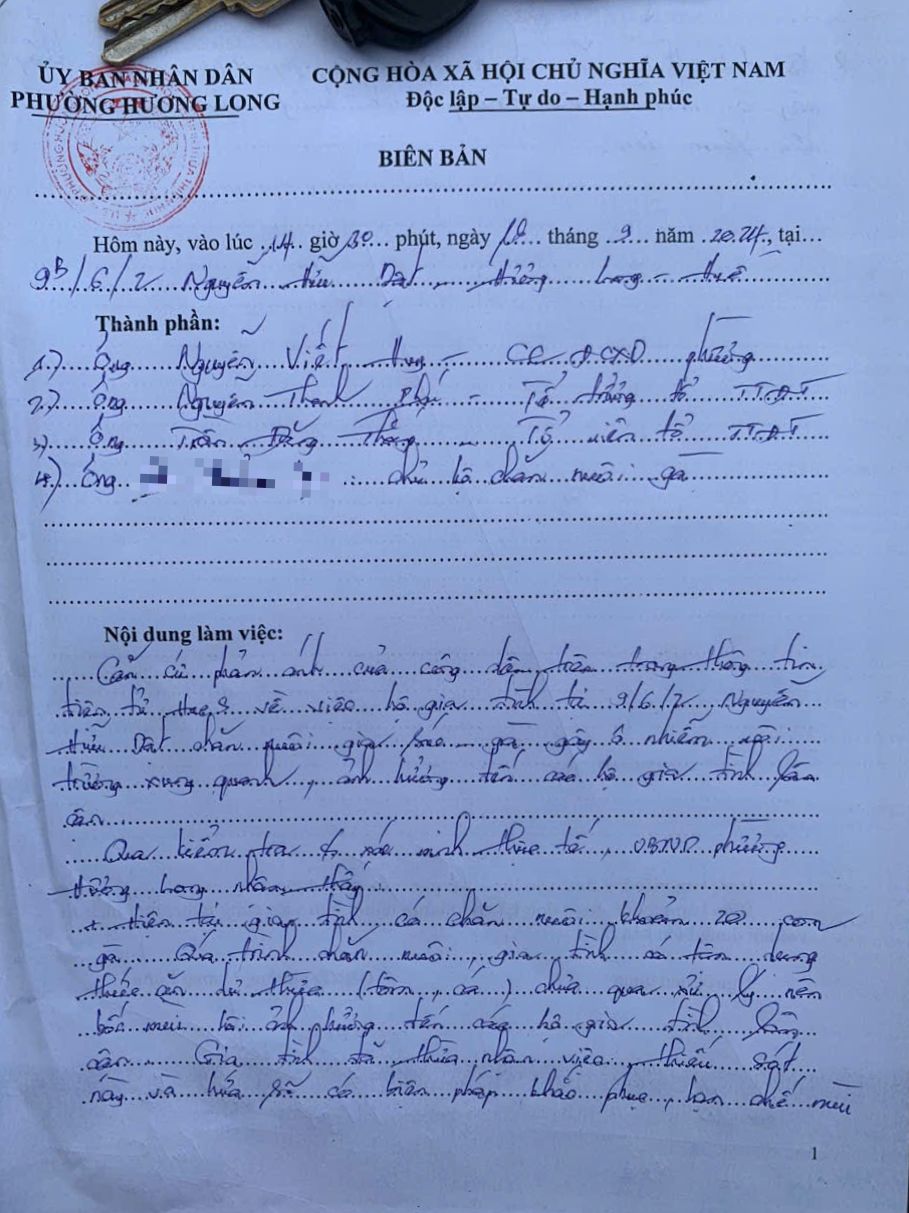 ỦY BAN NHÂN DÂN
PHƯỜNG HƯƠNG LONG
CỘNG HÒA XÃ HỘI CHỦ NGHĨA VIỆT NAM
Độc lập – Tự do – Hạnh phúc
BIÊN BẢN
Hôm này, vào lúc 14 giờ 30 phút, ngày tháng 9 năm 2024, tại
9B/6/2 Nguyễn Hữu Dật, Hương Long - Huế
Thành phần:
1.) Ông Nguyễn Viết - phường
2.) Ông Nguyễn Thanh - Tổ trưởng tổ TTĐT
3.) Ông Trần Đăng Tổ viên tổ TTĐT
4.) Ông chủ hộ chăn nuôi gà
Nội dung làm việc:
Căn cứ phản ánh của công dân trên trang thông tin
điện tử Hue S về việc hộ gia đình tại 9/6/2 Nguyễn
Hữu Dật chăn nuôi gia súc gà gây ô nhiễm môi
trường xung quanh, ảnh hưởng đến các hộ gia đình lân
cận.
Qua kiểm tra & xác minh thực tế, UBND phường
Hương Long nhận thấy:
+ Hiện tại gia đình có chăn nuôi khoản 20 con
gà. Quá trình chăn nuôi, gia đình có tận dụng
thức ăn dư thừa (tôm, cá) chưa qua xử lý nên
bốc mùi hôi ảnh hưởng đến các hộ gia đình lân
cận. Gia đình đã thừa nhận việc thiếu sót
này và hứa sẽ có biện pháp khắc phục, hạn chế mùi
1